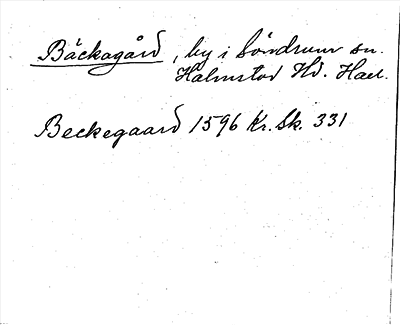 Bäckagård, by i Söndrum sn.
Halmstad Hd. Hall.
Beckegaard 1596 Kr. Sk. 331